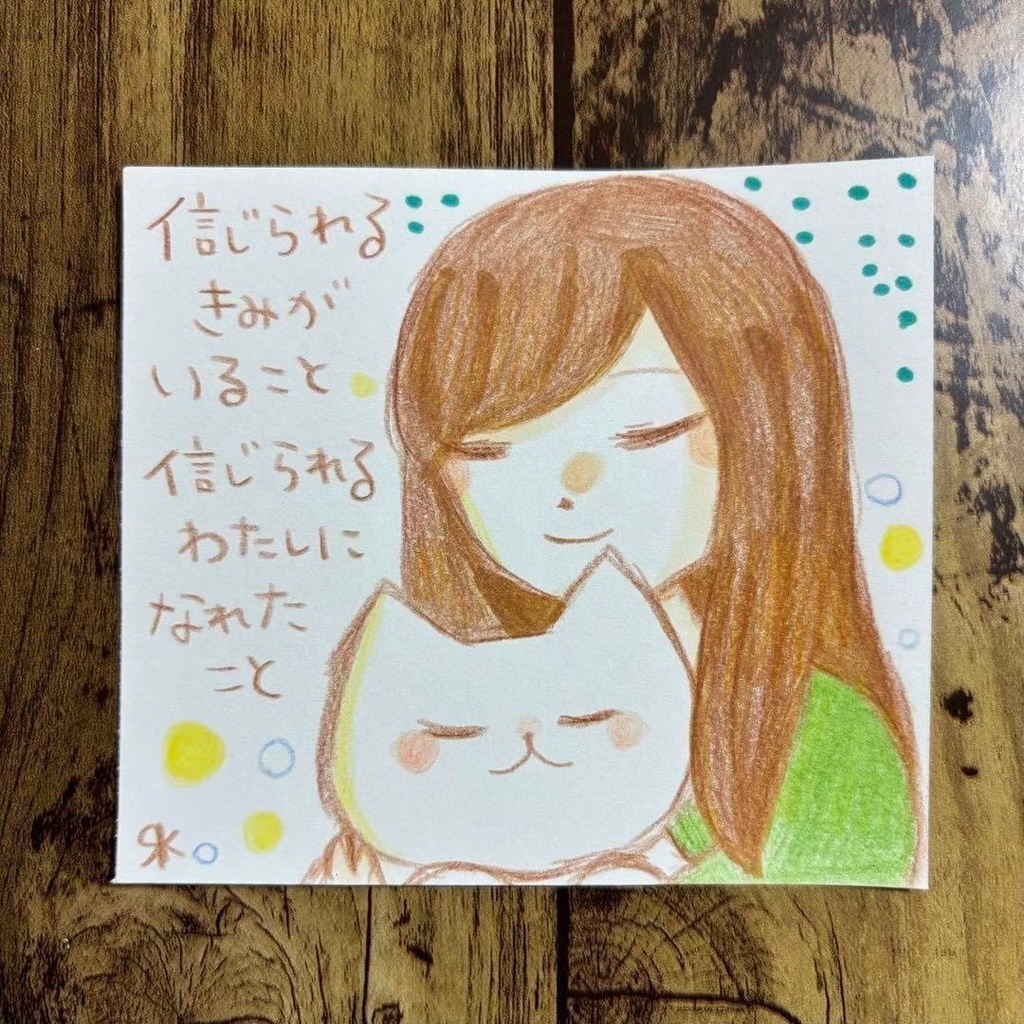 信じられる
きみが
いること
信じられる
わたしに
なれた
こと